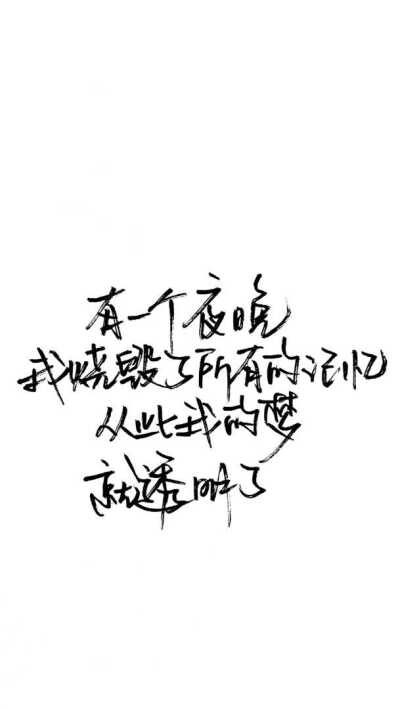 有一个夜晚
我烧毁了所有的记忆
从此我的梦
就透明了